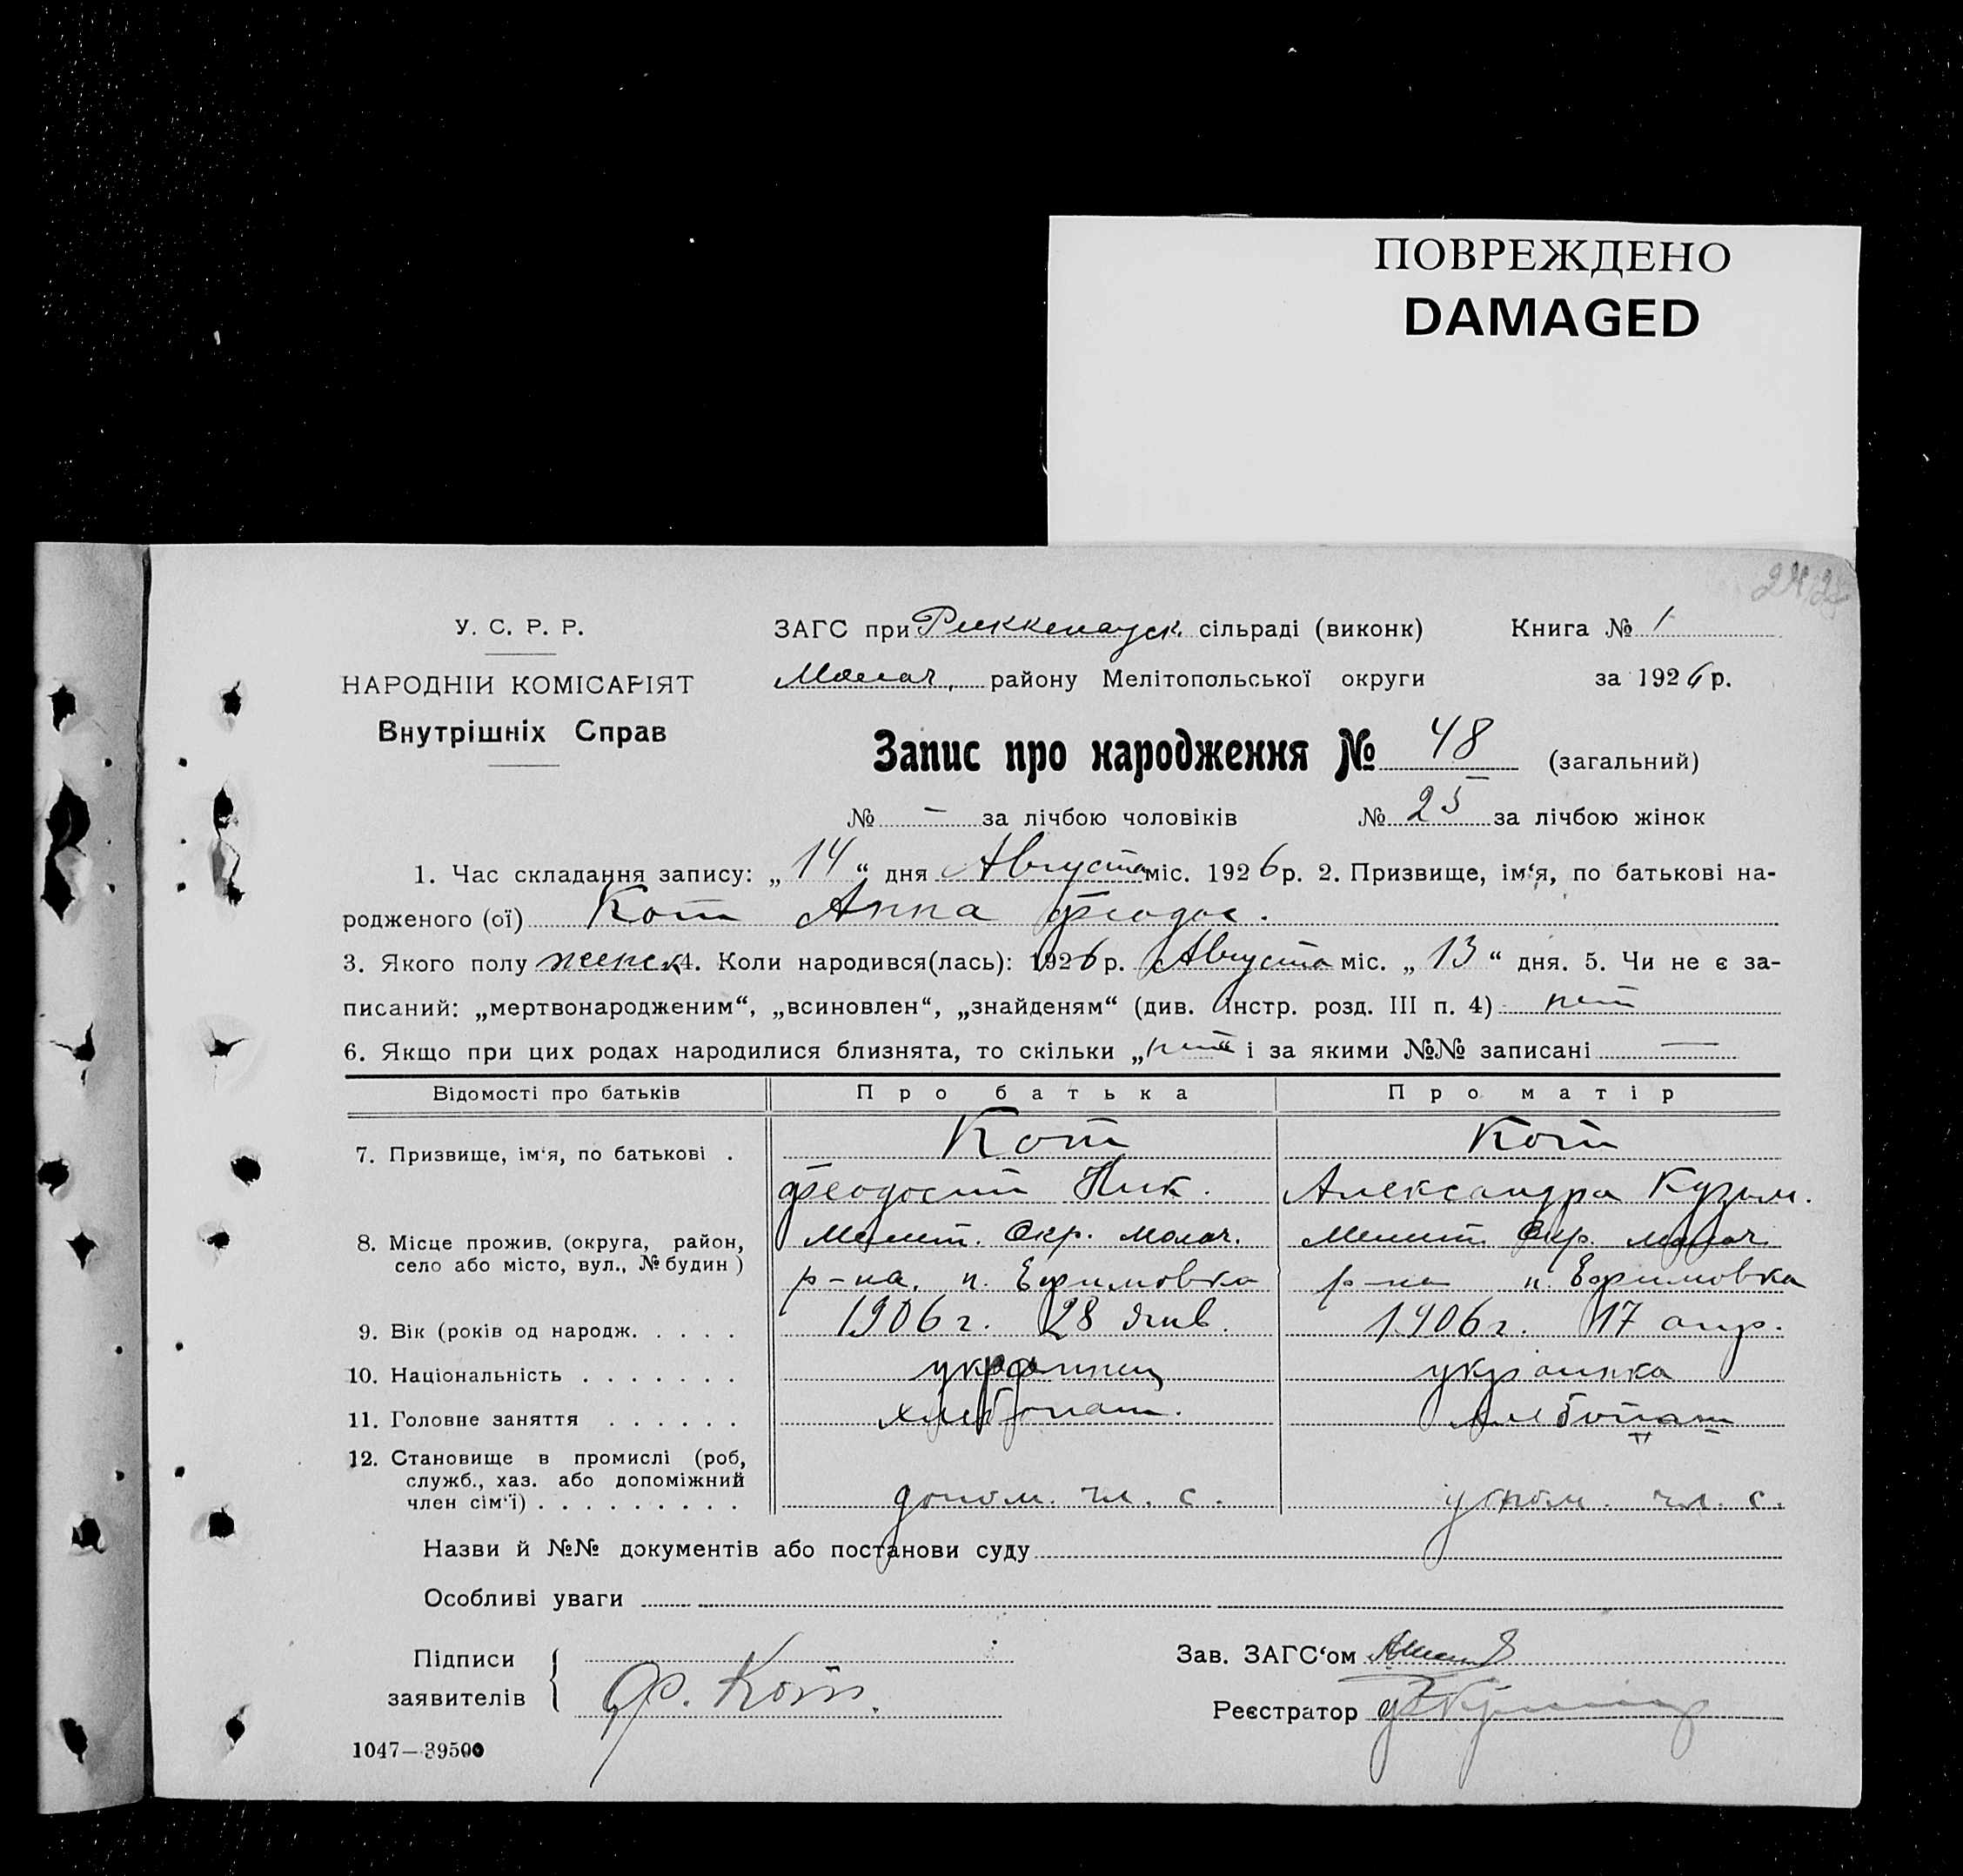 ПОВРЕЖДЕНО
DAMAGED
У. С. Р. Р.
НАРОДНІЙ КОМІСАРІЯТ
Внутрішніх Справ
ЗАГС при Риккенауск. сільраді (виконк) Книга № 1
Молоч. району Мелітопольської округи за 1926 р.
Запис про народження № 48 (загальний)
№ — за лічбою чоловіків № 25 за лічбою жінок
1. Час складання запису: „14“ дня Августа міс. 1926 р. 2. Призвище, ім‘я, по батькові на-
родженого (ої) Кот Анна Феодос.
3. Якого полу женск 4. Коли народився(лась): 1926 р. Августа міс. „13“ дня. 5. Чи не є за-
писаний: „мертвонародженим“, „всиновлен“, „знайденям“ (див. інстр. розд. III п. 4) нет
6. Якщо при цих родах народилися близнята, то скільки „нет“ і за якими №№ записані —
Відомості про батьків Про батька Про матір
7. Призвище, ім‘я, по батькові . Кот Кот
Феодосий Ник. Александра Кузьм.
8. Місце прожив. (округа, район, Мелит. Окр. Молоч. Мелит. Окр. Молоч.
село або місто, вул., № будин) р-на, п. Ефимовка р-на п. Ефимовка
9. Вік (років од народж. . . . . 1906 г. 28 янв. 1906 г. 17 апр.
10. Національність . . . . . . . украинец украинка
11. Головне заняття . . . . . . хлебопаш. хлебопаш
12. Становище в промислі (роб,
служб., хаз. або допоміжний
член сім‘ї) . . . . . . . . . допом. чл. с. допом. чл. с.
Назви й №№ документів або постанови суду
Особливі уваги
Підписи
заявителів
Ф. Кот.
Зав. ЗАГС‘ом
Реєстратор
1047—39500